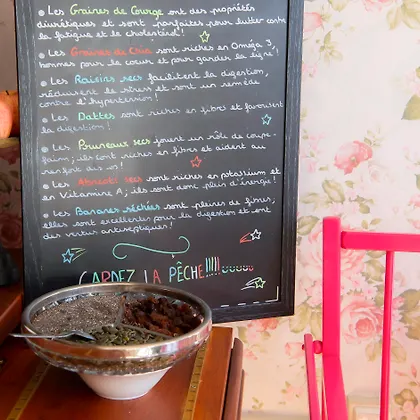 • Les Graines de Courge ont des propriétés
diurétiques et sont parfaites pour lutter contre
la fatigue et le cholestérol!
• Les Graines de sont riches en Oméga 3,
bonnes pour le coeur et pour garder la ligne!
• Les Raisins secs facilitent la digestion,
réduisent le stress et sont un remède
contre l'hypertension!
• Les Dattes sont riches en fibres et favorisent
la digestion!
• Les Pruneaux secs jouent un rôle de coupe-
faim; ils sont riches en fibres et aident au
• Les Abricots secs sont riches en potassium et
en Vitamine A; ils sont donc plein d'énergie!
• Les Bananes séchées sont pleines de fibres;
elles sont excellentes pour la digestion et ont
des vertus antiseptiques!
GARDEZ LA PÊCHE!!!!